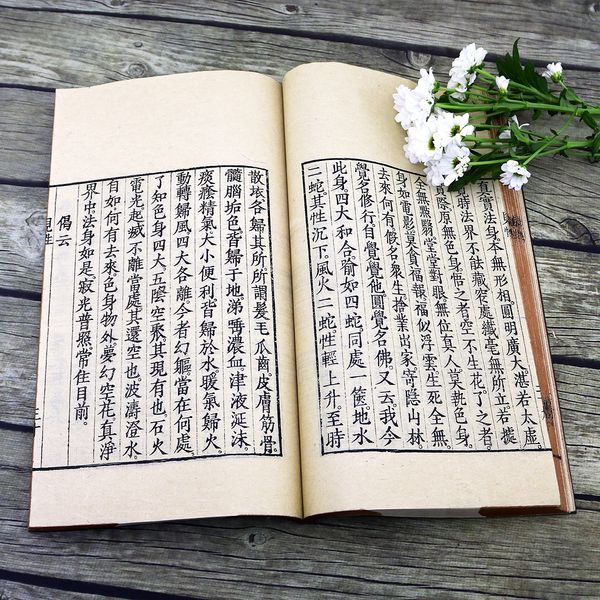 真實法身本無形相圓明廣大湛若太虛
時法界不能藏窄處纖毫無所立若據
真際原無色身悟之者空不生花了之者
全無黑翳堂堂對眼無位真人莫執色身
身如電影莫貪福報福似浮雲生死全無
去來何有假名眾生捨業出家寄隱山林
覺名修行自覺覺他圓覺名佛又云我今
此身四大和合喻如四蛇同處一篋地水
二蛇其性沉下風火二蛇性輕上升至時
散壞各歸其所所謂髮毛瓜齒皮膚筋骨
髓腦垢色皆歸于地涕唾濃血津液涎沫
痰癊精氣大小便利皆歸於水暖氣歸火
動轉歸風四大各離今者幻軀當在何處
了知色身四大五陰空聚其現有也石火
電光起滅不離當處其還空也波濤澄水
自如何有去來色身物外夢幻空花真淨
界中法身如是寂光普照常住目前
偈云
見性